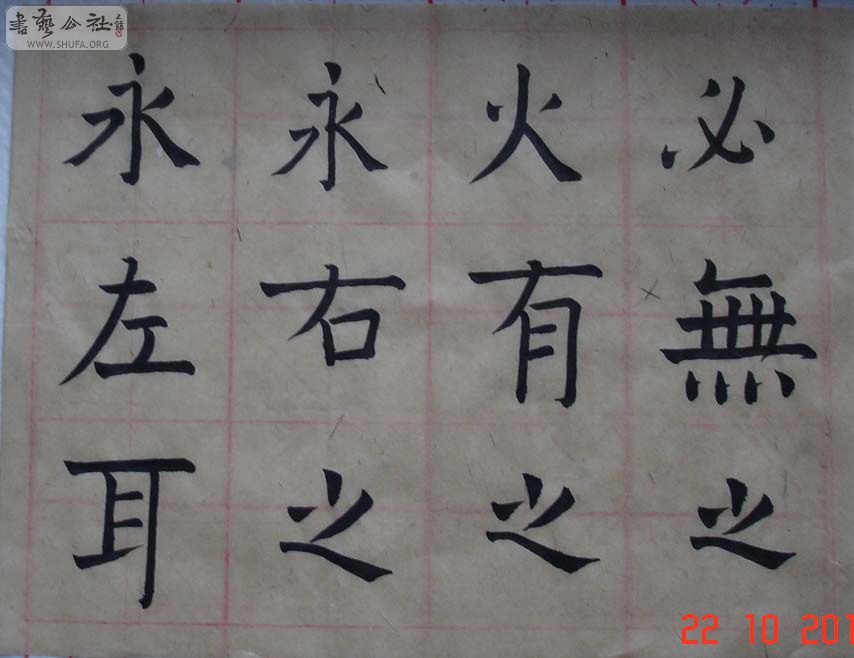 書藝公社
WWW.SHUFA.ORG
永永火必
左右有無
耳之之之
22 10 201